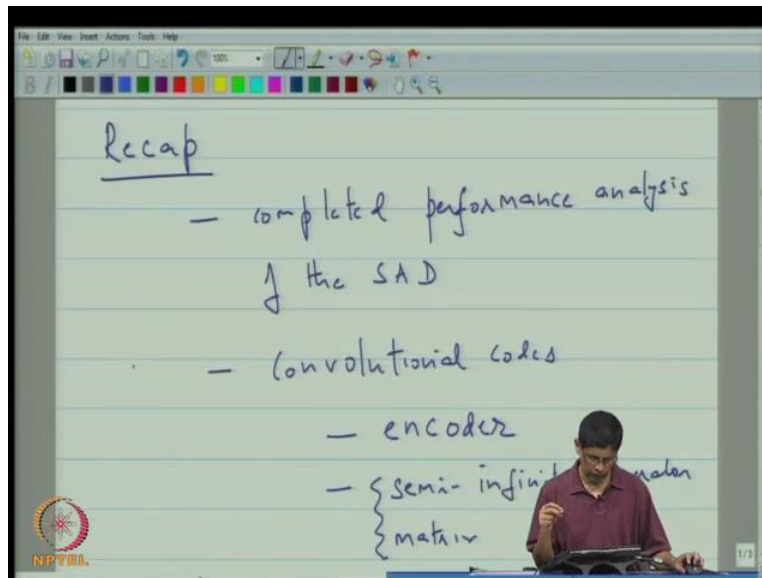 File Edit View Insert Actions Tools Help
100%
B I
Recap
— completed performance analysis
of the SAD
— Convolutional codes
— encoder
— { semi-infinite
{ matrix
NPTEL
1/3